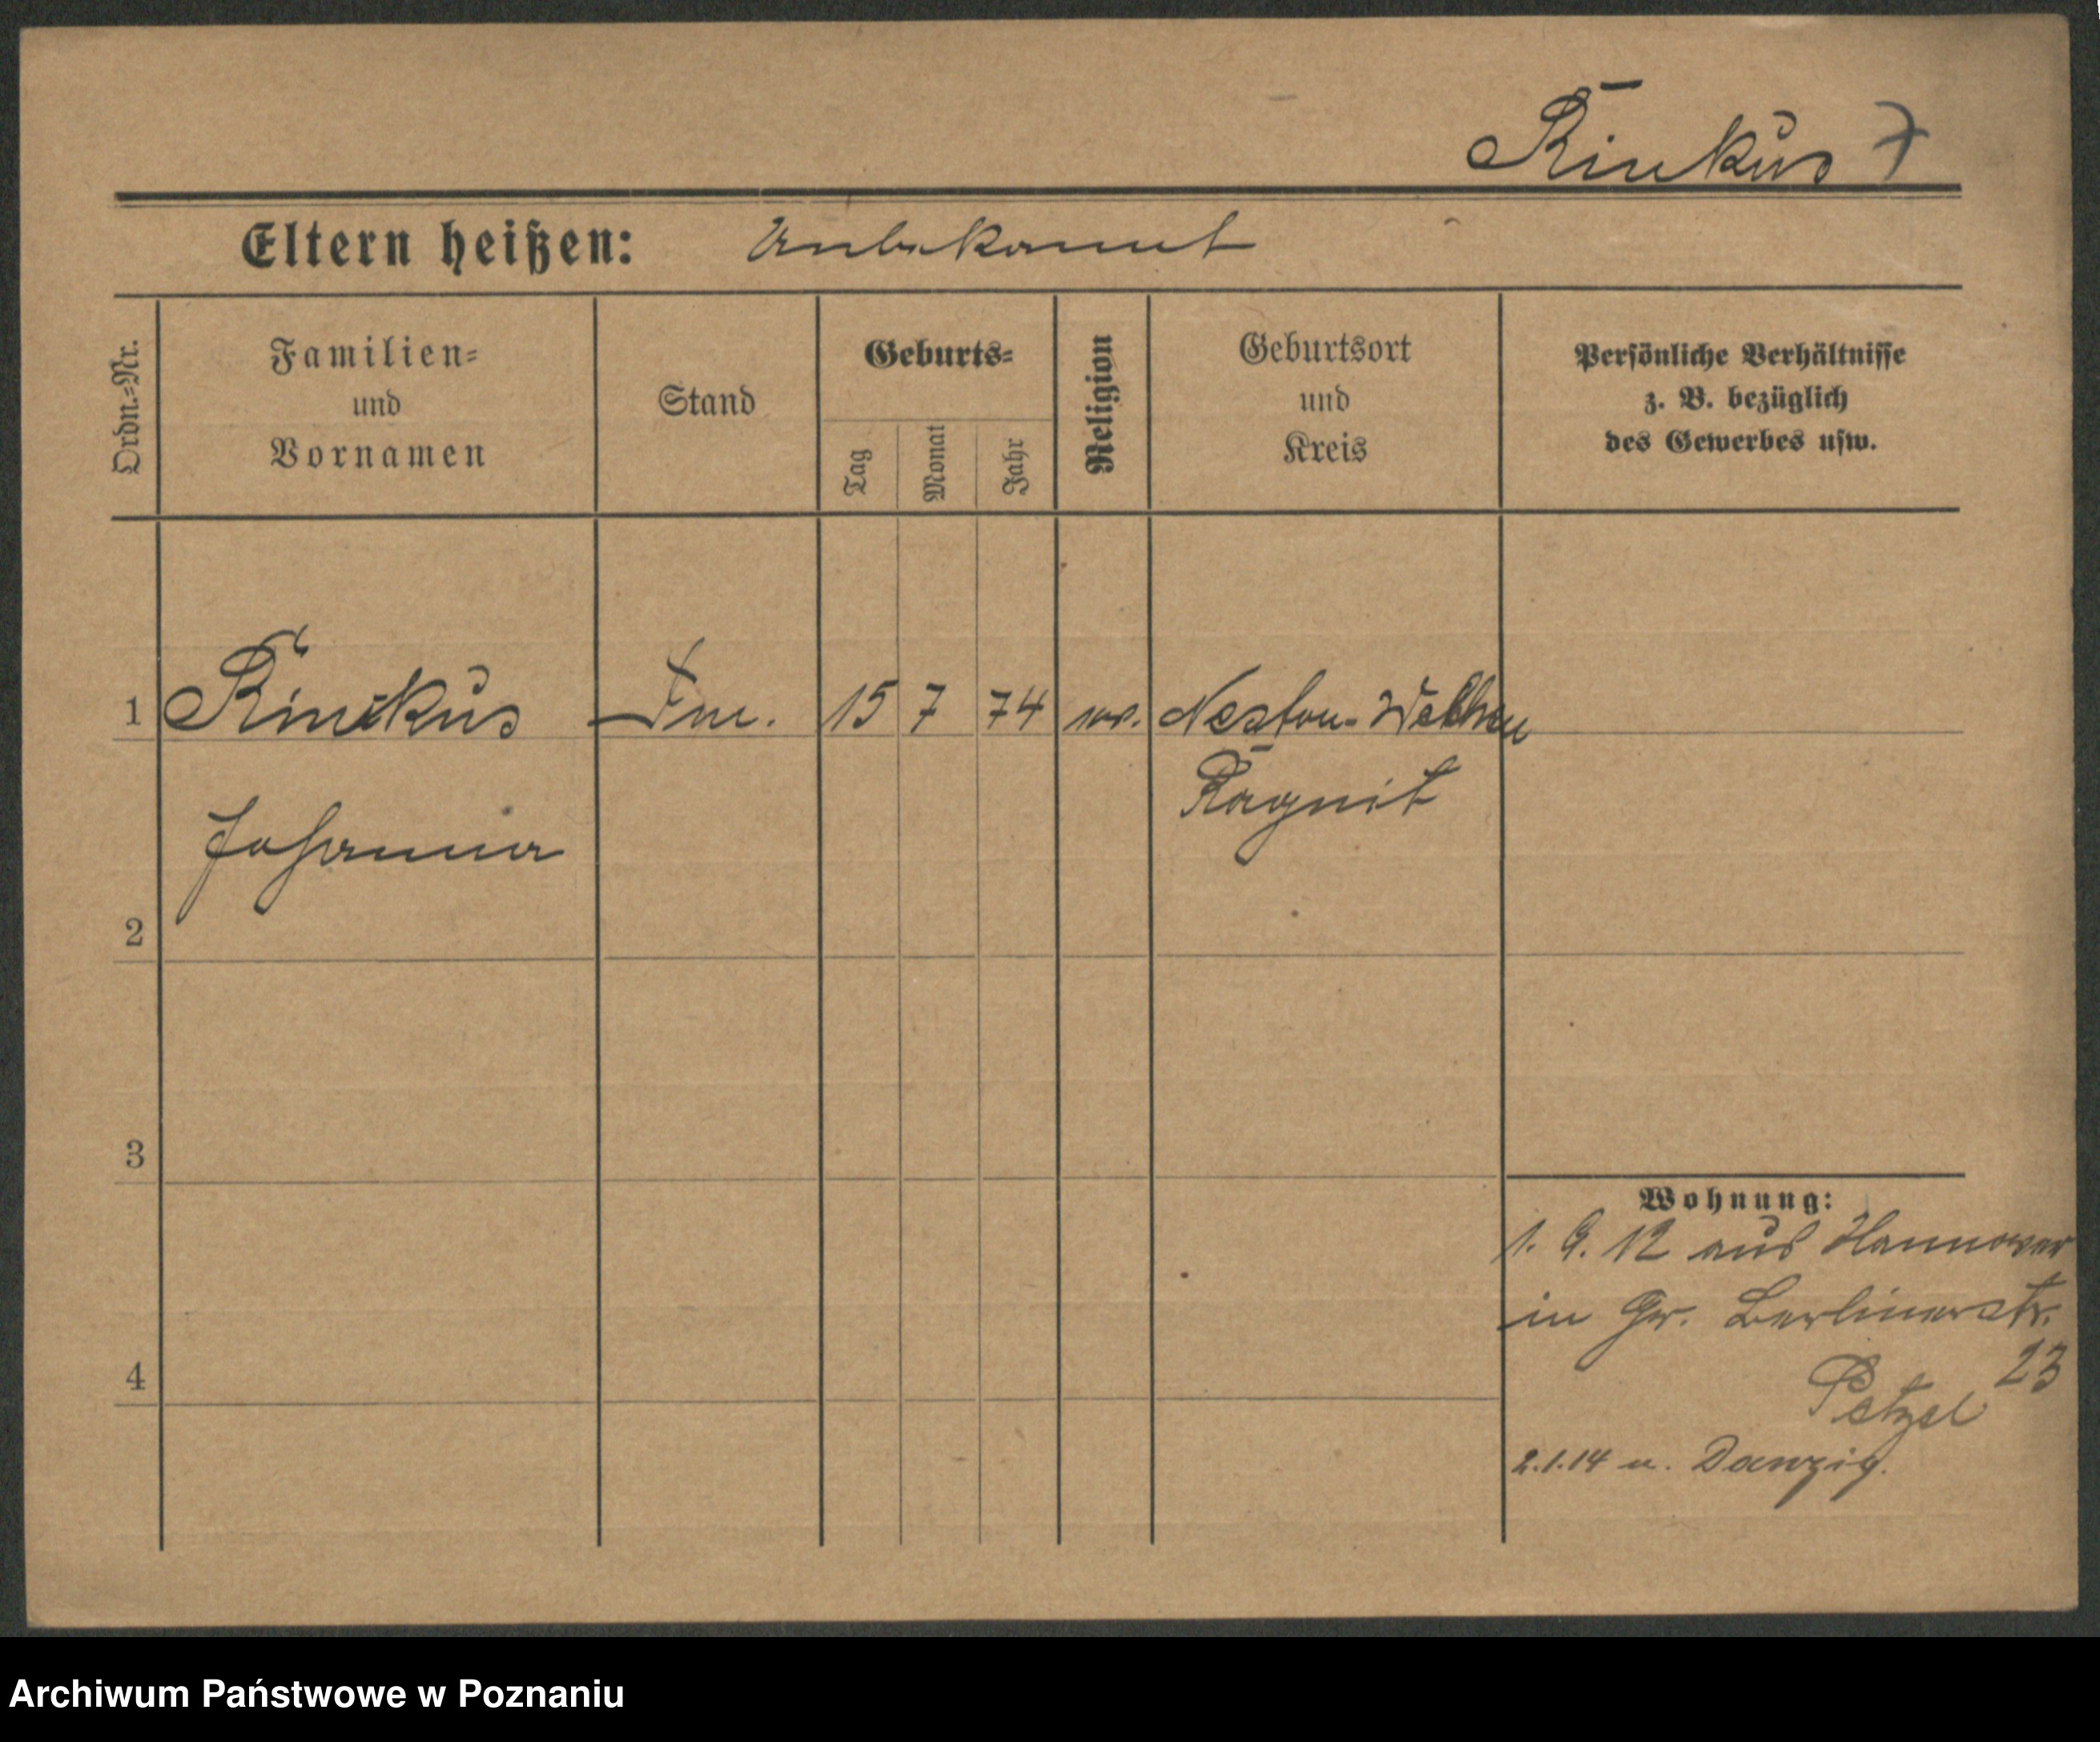 Rinkus 7
Eltern heißen: Unbekannt
Ordn.-Nr.
Familien-
und
Vornamen
Stand
Geburts-
Tag
Monat
Jahr
Religion
Geburtsort
und
Kreis
Persönliche Verhältnisse
z. B. bezüglich
des Gewerbes usw.
1 Rinkus 15 7 74 ev.
Ragnit
Johanna
2
3
4
Wohnung:
1. 9. 12 aus Hannover
in Gr. Berlinerstr.
23
Petzel
2.1.14 n. Danzig.
Archiwum Państwowe w Poznaniu